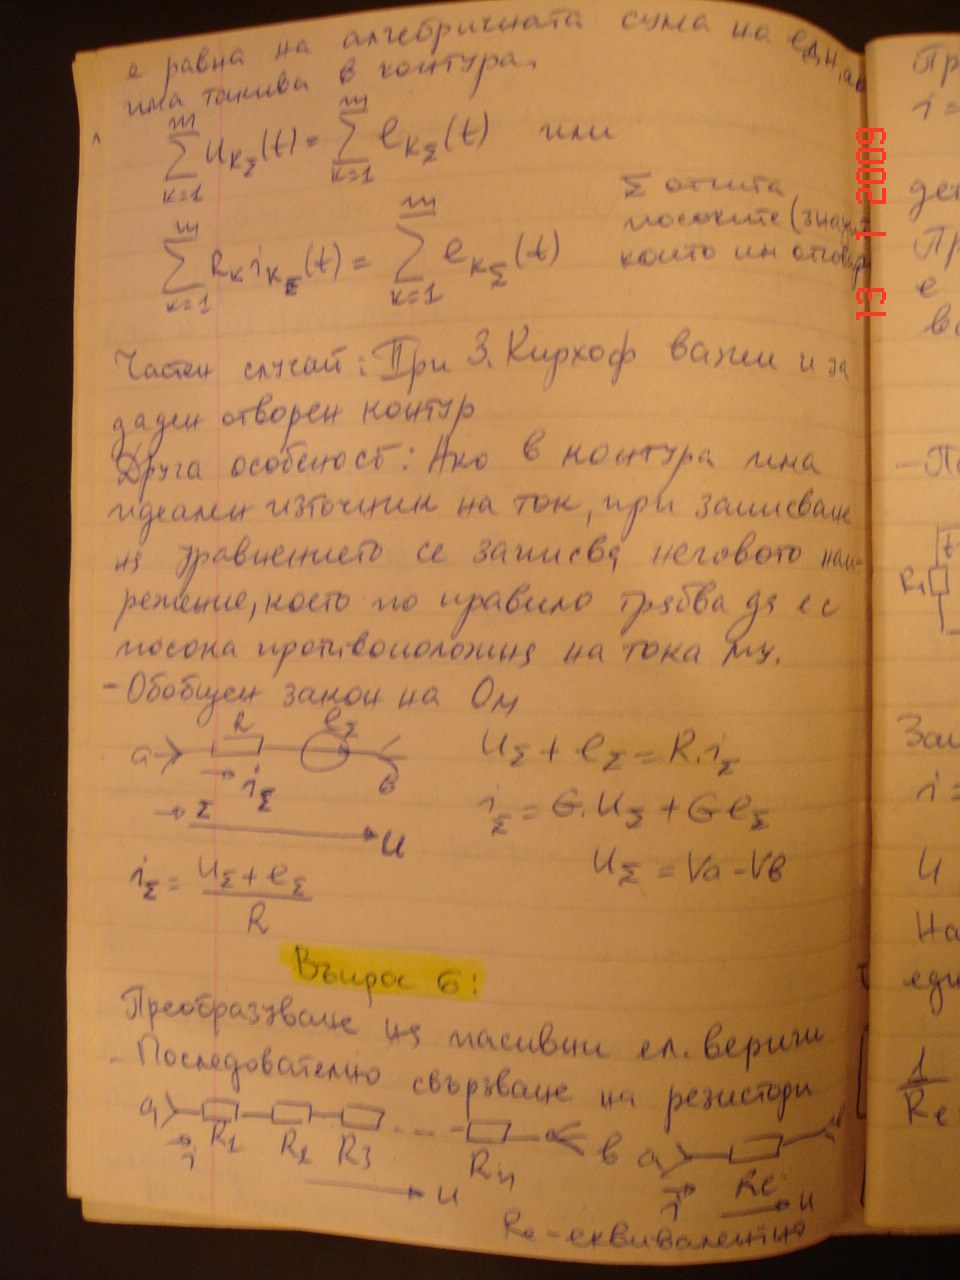 е равна на алгебричната сума на едн,ав
има такива в контура.
m Σ k=1 u_kΣ(t) = m Σ k=1 e_kΣ(t) или
Σ отчита
посоките (знаци
които им отговар
m Σ k=1 R_k i_kΣ(t) = m Σ k=1 e_kΣ(t)
Частен случай: При З. Кирхоф важи и за
даден отворен контур
Друга особеност: Ако в контура има
идеален източник на ток, при записване
на уравнението се записва неговото нап-
режение, което по правило трябва да е с
посока противоположна на тока му.
- Обобщен закон на Ом
R e_Σ
a i_Σ в
→ Σ
U
U_Σ + e_Σ = R.i_Σ
i_Σ = G.U_Σ + G e_Σ
U_Σ = Va - Vв
i_Σ = (U_Σ + e_Σ) / R
Въпрос 6:
Преобразуване на пасивни ел. вериги
- Последователно свързване на резистори
a R1 R2 R3 ... Rn в
i u
a Rе в
i u
Rе - еквивалентно
13 1 2009
Пр
i =
дет
Пр
е
во
- По
R1
Зап
i =
U
На
еди
1/Rе